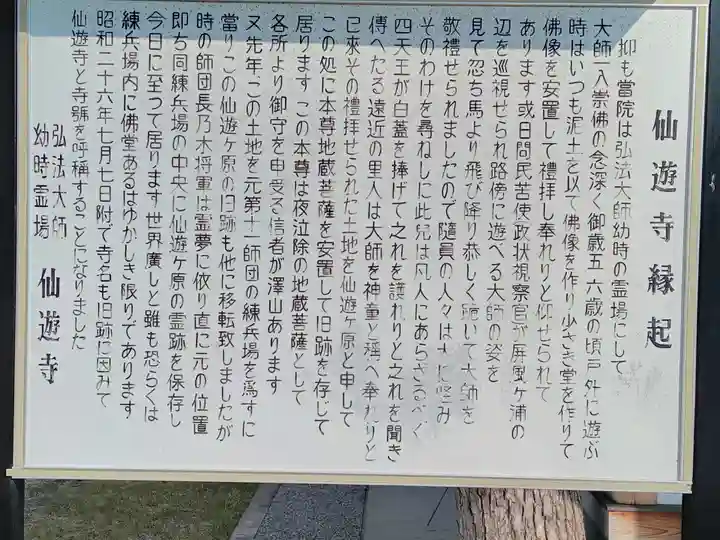 仙遊寺縁起
抑も當院は弘法大師幼時の霊場にして
大師一入崇佛の念深く御歳五六歳の頃戸外に遊ぶ
時はいつも泥土を以て佛像を作り少さき堂を作りて
佛像を安置して禮拝し奉れりと仰せられて
あります或日問民苦使政状視察官が屏風ヶ浦の
辺を巡視せられ路傍に遊べる大師の姿を
見て忽ち馬より飛び降り恭しく跪いて大師を
敬禮せられましたので隨員の人々は大に怪み
そのわけを尋ねしに此兒は凡人にあらざるべく
四天王が白蓋を捧げて之れを護れりと之れを聞き
傳へたる遠近の里人は大師を神童と稱へ奉れりと
已來その禮拝せられた土地を仙遊ヶ原と申して
この処に本尊地蔵菩薩を安置して旧跡を存じて
居ります この本尊は夜泣除の地蔵菩薩として
各所より御守を申受る信者が澤山あります
又先年この土地を元第十一師団の練兵場を爲すに
當りこの仙遊ヶ原の旧跡も他に移転致しましたが
時の師団長乃木将軍は霊夢に依り直に元の位置
即ち同練兵場の中央に仙遊ヶ原の霊跡を保存し
今日に至つて居ります世界廣しと雖も恐らくは
練兵場内に佛堂あるはゆかしき限りであります
昭和二十六年七月七日附で寺名も旧跡に因みて
仙遊寺と寺號を呼稱することになりました
弘法大師
幼時霊場
仙遊寺